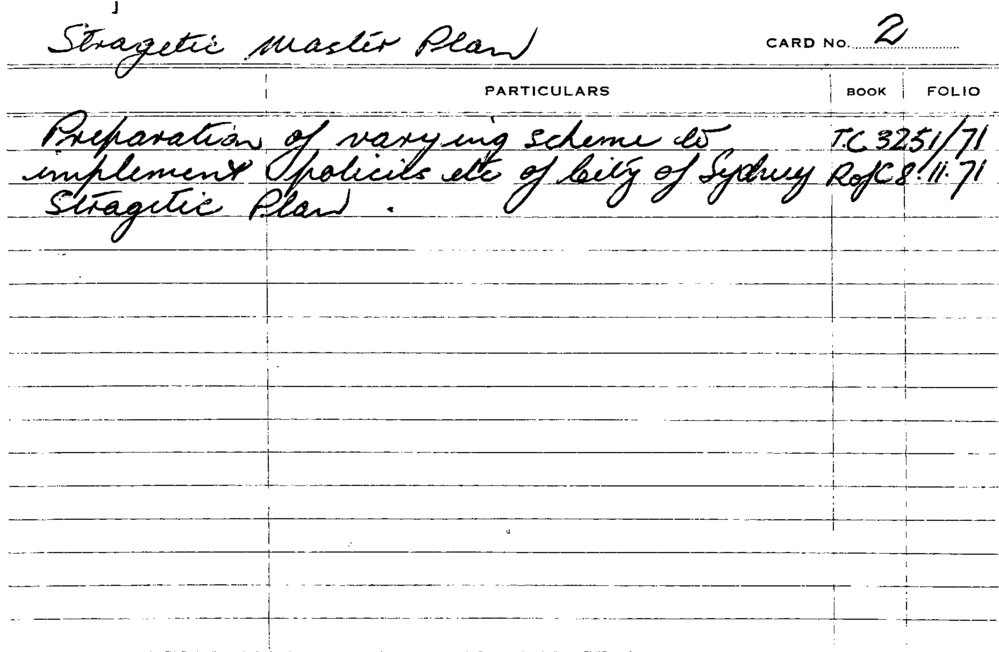 Stragetic Master Plan CARD No. 2
PARTICULARS BOOK FOLIO
Preparation of varying scheme to T.C 3251/71
implement policies etc of City of Sydney RofC 8.11.71
Stragetic Plan .